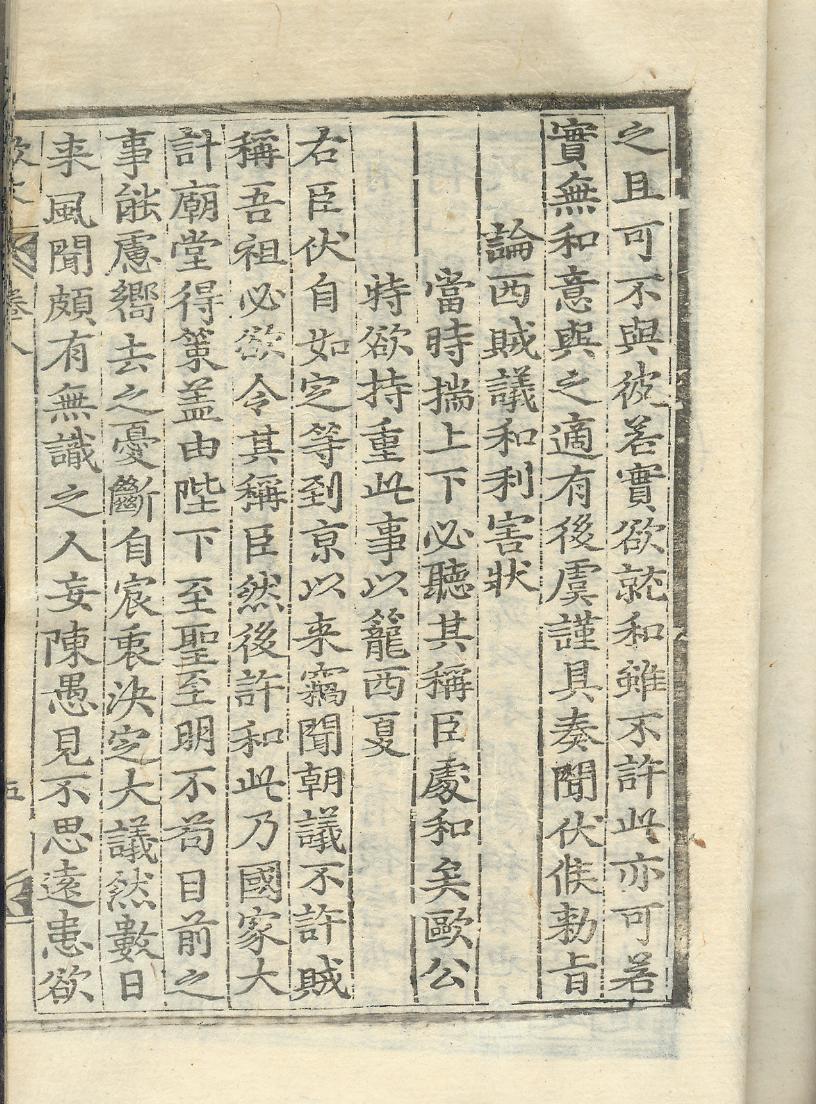 之且可不與彼若實欲就和雖不許此亦可若
實無和意與之適有後虞謹具奏聞伏候勑旨
論西賊議和利害狀
當時揣上下必聽其稱臣處和矣歐公
特欲持重此事以籠西夏
右臣伏自如定等到京以来竊聞朝議不許賊
稱吾祖必欲令其稱臣然後許和此乃國家大
計廟堂得策盖由陛下至聖至明不苟目前之
事能慮嚮去之憂斷自宸衷決定大議然數日
来風聞頗有無識之人妄陳愚見不思遠患欲
卷八
五